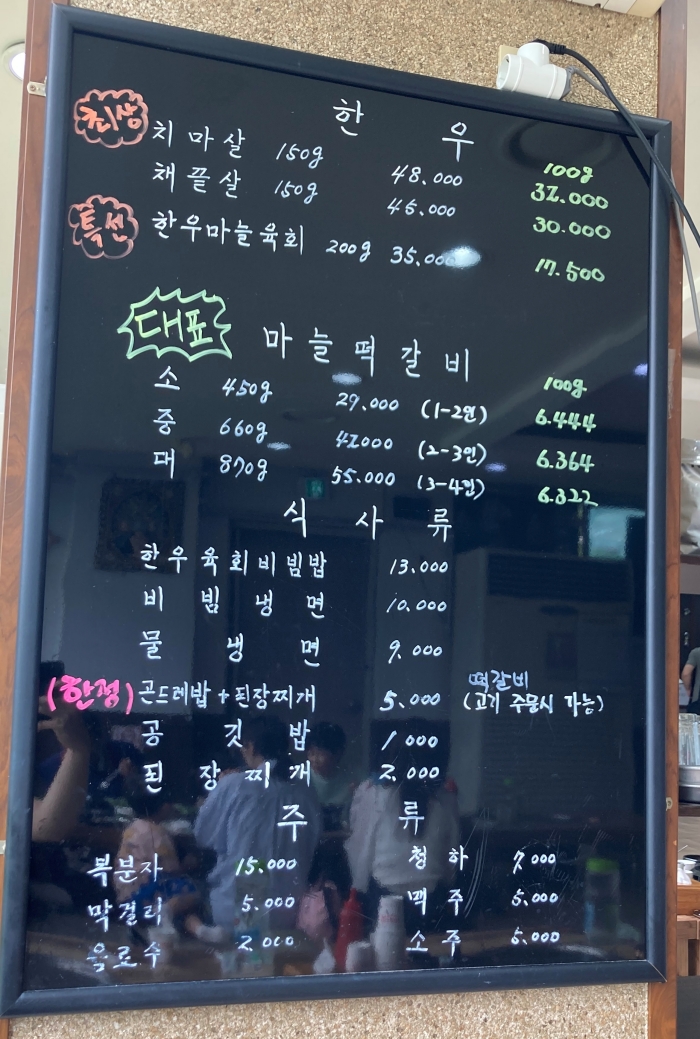 한 우
최상 치마살 150g 48.000 100g 32.000
채끝살 150g 45.000 30.000
특선 한우마늘육회 200g 35.000 17.500
대표 마늘떡갈비
소 450g 29.000 (1-2인) 100g 6.444
중 660g 42000 (2-3인) 6.364
대 870g 55.000 (3-4인) 6.322
식 사 류
한우육회비빔밥 13.000
비 빔 냉 면 10.000
물 냉 면 9.000
(한정) 곤드레밥+된장찌개 5.000 떡갈비 (고기 주문시 가능)
공 깃 밥 1 000
된 장 찌 개 2.000
주 류
복분자 15.000 청하 7.000
막걸리 5.000 맥주 5.000
음료수 2.000 소주 5.000